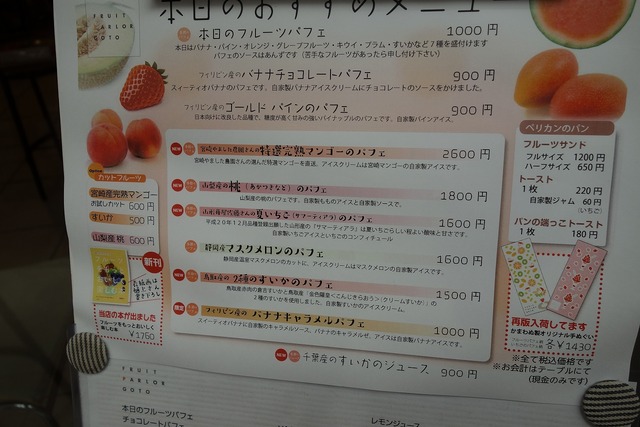 FRUIT
PARLOR
GOTO
本日のおすすめメニュー
本日のフルーツパフェ 1000円
本日はバナナ・パイン・オレンジ・グレープフルーツ・キウイ・プラム・すいかなど7種を盛付けます
パフェのソースはあんずです(苦手なフルーツがあったら申し付け下さい)
フィリピン産のバナナチョコレートパフェ 900円
スィーティオバナナのパフェです。自家製バナナアイスクリームにチョコレートのソースをかけました。
フィリピン産のゴールドパインのパフェ 900円
日本向けに改良した品種で、糖度が高く甘みの強いパイナップルのパフェです。自家製パインアイス。
NEW 宮崎やました農園さんの特選完熟マンゴーのパフェ 2600円
宮崎やました農園さんの選んだ特選マンゴーを直送。アイスクリームは宮崎マンゴーの自家製アイスです。
NEW 山梨産の桃(あかつきなど)のパフェ 1800円
山梨産の桃のパフェです。自家製ももアイスと自家製ソースで。
NEW 山形県尾花沢さんの夏いちご(サマーティアラ)のパフェ 1600円
平成20年12月品種登録出願した山形産の「サマーティアラ」は夏いちごらしい程よい酸味と甘さです。
自家製いちごアイスといちごのコンフィチュール
静岡産マスクメロンのパフェ 1600円
静岡産温室マスクメロンのカットに、アイスクリームはマスクメロンの自家製アイスです。
NEW 鳥取産の2種のすいかのパフェ 1500円
2種のすいかを使用しました。自家製すいかのアイスクリーム。
限定 フィリピン産のバナナキャラメルパフェ 1000円
スイーティオバナナに自家製のキャラメルソース。バナナのキャラメルゼ、アイスは自家製バナナアイスです。
NEW 千葉産のすいかのジュース 900円
カットフルーツ
宮崎産完熟マンゴー
お試しカット 600円
すいか 500円
山梨産 桃 600円
新刊
当店の本が出ました
フルーツをもっとおいしく
¥1760
ペリカンのパン
フルーツサンド
フルサイズ 1200円
ハーフサイズ 650円
トースト
1枚 220円
自家製ジャム 60円
(いちご)
パンの端っこトースト
1枚 180円
再版入荷してます
かまわぬ製オリジナル手ぬぐい
各¥1430
※全て税込価格です
※お会計はテーブルにて
(現金のみです)
FRUIT
PARLOR
GOTO
本日のフルーツパフェ
チョコレートパフェ
レモンジュース